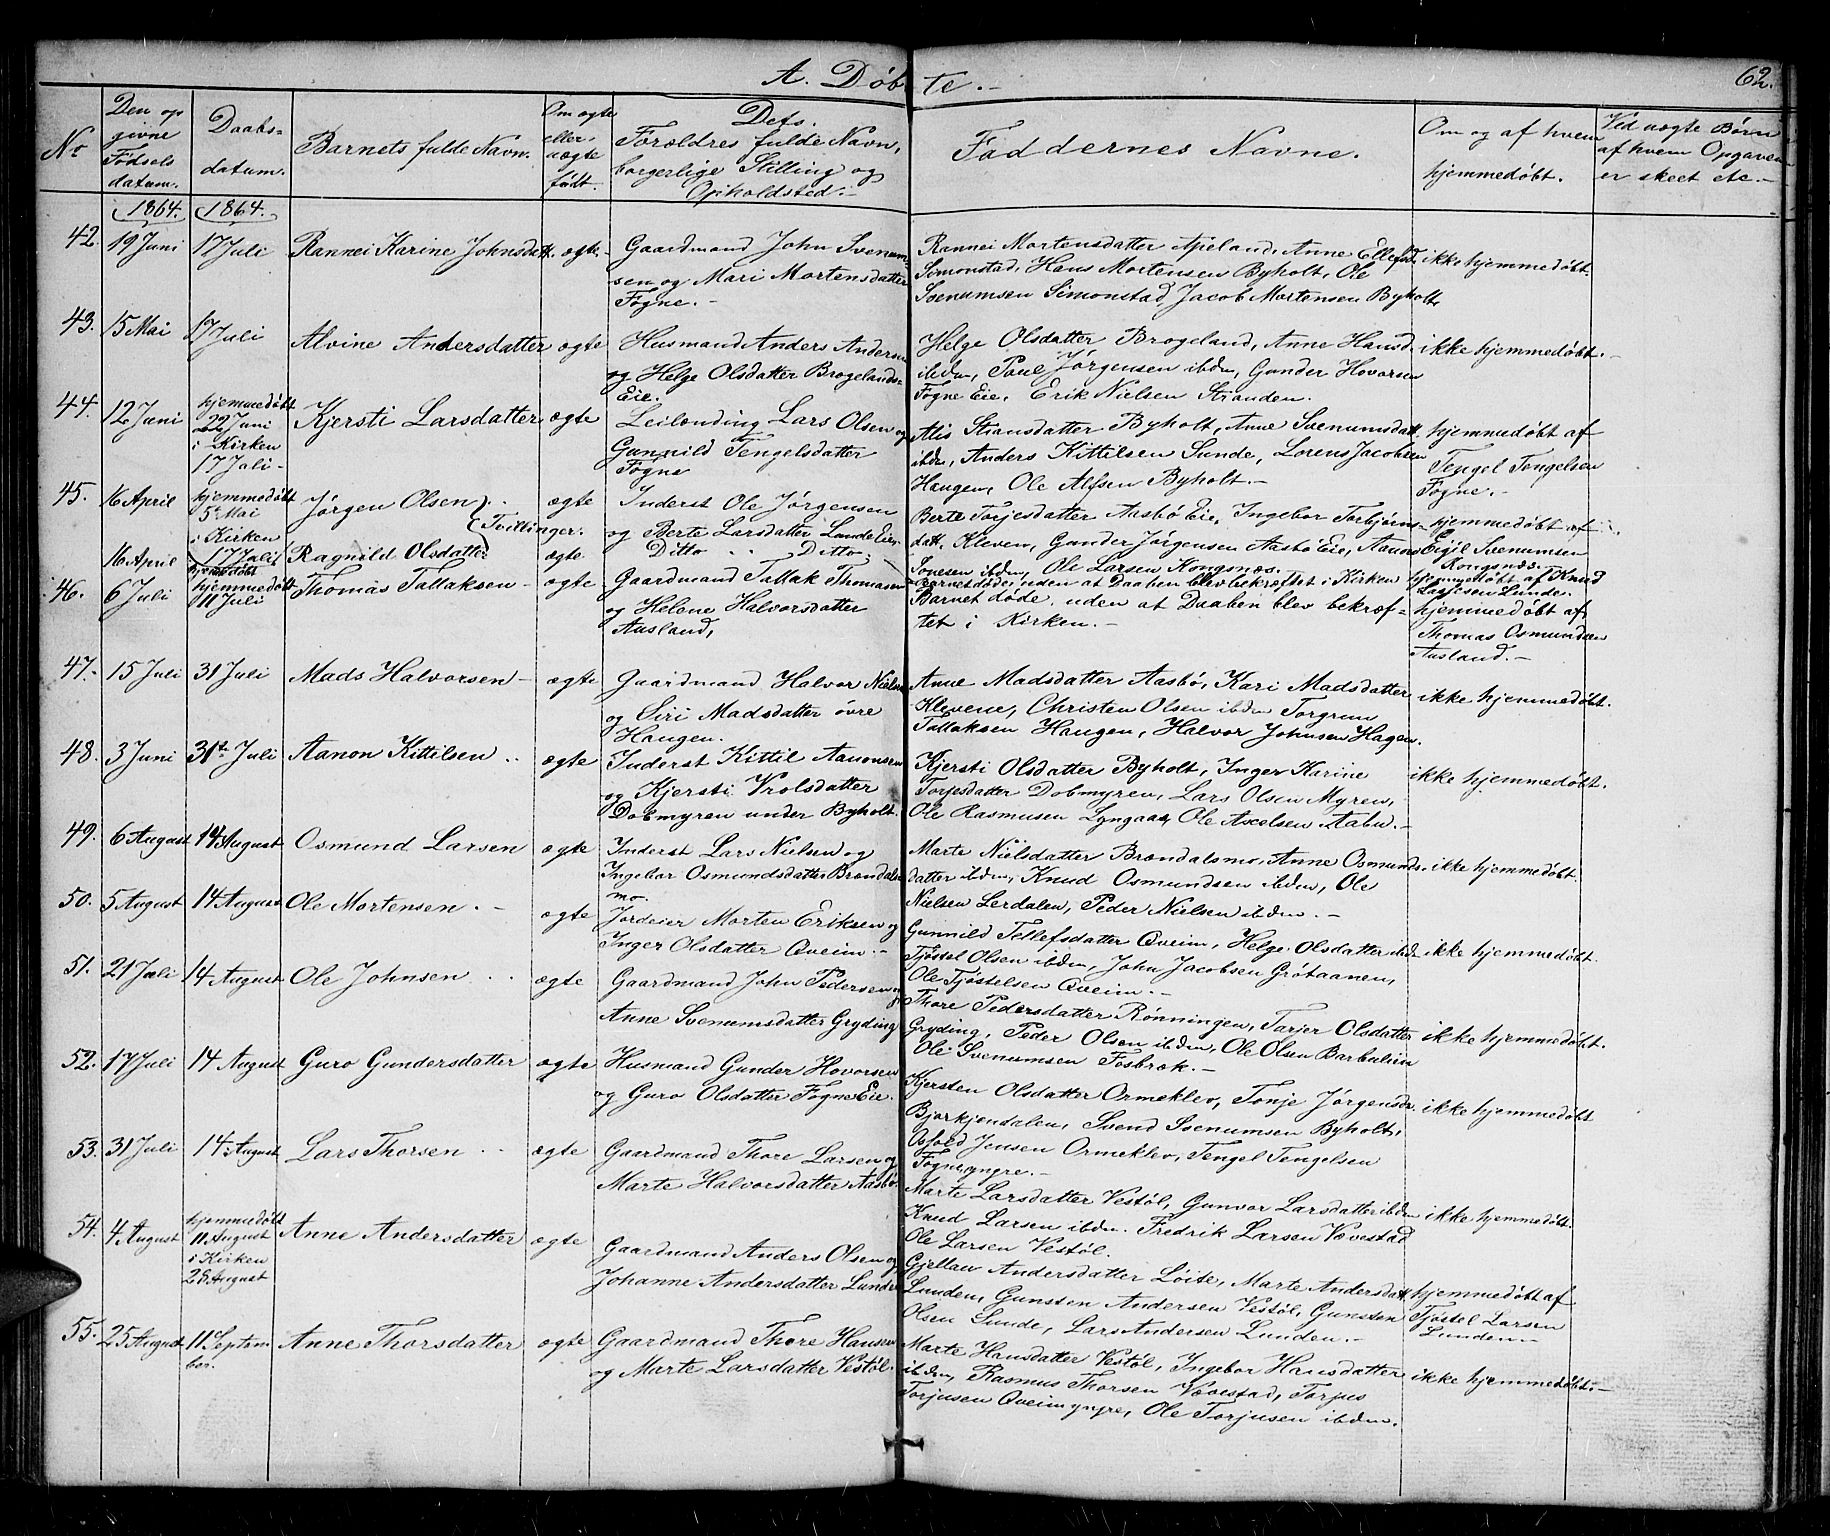 A. Døbte.-
62.
No
Den op
givne
Fødsels
datum.
Daabs-
datum.
Barnets fulde Navn.
Om ægte
eller
uægte
født.
Dets.
Forældres fulde Navn,
borgerlige Stilling og
Opholdsted.
Faddernes Navne.
Om og af hvem
hjemmedøbt.
Ved uægte Børn
af hvem Opgaven
er skeet etc.-
1864. 1864.
42. 19 Juni 17 Juli Rannei Karine Johnsdatt. ægte.
Gaardmand John Svenum-
sen og Mari Mortensdatter
Fogne.-
Rannei Mortensdatter Apeland, Anne Ellefsd.
Simonstad, Hans Mortensen Byholt, Ole
Svenumsen Simonstad, Jacob Mortensen Byholt.
ikke hjemmedøbt.
43. 15 Mai 17 Juli Alvine Andersdatter ægte
Husmand Anders Andersen
og Helge Olsdatter Brogelands-
Eie.
Helge Olsdatter Brogeland, Anne Hansd.
ibdm, Poul Jørgensen ibdm, Gunder Hovorsen
Fogne Eie, Erik Nielsen Stranden.
ikke hjemmedøbt.-
44. 12 Juni hjemmedøbt
22 Juni
i Kirken
17 Juli-
Kjersti Larsdatter ægte
Leilending Lars Olsen og
Gunnild Tengelsdatter
Fogne
Alis Stiansdatter Byholt, Anne Svenumsdatt.
ibdm, Anders Kittilsen Sunde, Lorens Jacobsen
Haugen, Ole Alfsen Byholt.-
hjemmedøbt af
Tengel Tengelsen
Fogne.-
45. 16 April hjemmedøbt
5te Mai
i Kirken
17 Juli
Jørgen Olsen
Tvillinger.
ægte
Inderst Ole Jørgensen
og Berte Larsdatter Lunde Eie
Berte Torjesdatter Aasbø Eie, Ingebor Torbjørns-
datt. Kleven, Gunder Jørgensen Aasbø Eie, Aanon
Jonesen ibdm, Ole Larsen Kongsnæs.
hjemmedøbt af
Svenumsen
Kongsnæs.
16 April hjemmedøbt
Ragnild Olsdatter ægte
Ditto Ditto
Barnet døde, uden at Daaben blev bekræftet i Kirken
hjemmedøbt af Knud
Larsen Lunde.
46. 6 Juli hjemmedøbt
11 Juli
Thomas Tallaksen - ægte
Gaardmand Tallak Thomasen
og Helene Halvorsdatter
Ausland,
Barnet døde, uden at Daaben blev bekræf-
tet i Kirken.-
hjemmedøbt af
Thomas Osmundsen
Ausland.-
47. 15 Juli 31 Juli Mads Halvorsen - ægte
Gaardmand Halvor Nielsen
og Siri Madsdatter øvre
Haugen.
Anne Madsdatter Aasbø, Kari Madsdatter
Klevene, Christen Olsen ibdm Torgrim
Tallaksen Haugen, Halvor Johnsen Hagen.
ikke hjemmedøbt.
48. 3 Juni 31te Juli Aanon Kittilsen .. ægte
Inderst Kittil Aanonsen
og Kjersti Vrolsdatter
Dobmyren under Byholt.
Kjersti Olsdatter Byholt, Inger Karine
Torjesdatter Dobmyren, Lars Olsen Myren,
Ole Rasmusen Lyngaas, Ole Axelsen Aabu.-
ikke hjemmedøbt.
49. 6 August 14 August Osmund Larsen ægte
Inderst Lars Nielsen og
Ingebor Osmundsdatter Brændals-
mo.
Marte Nielsdatter Brændalsmo, Anne Osmunds-
datter ibdm, Knud Osmundsen ibdm, Ole
Nielsen Lerdalen, Peder Nielsen ibdm.-
ikke hjemmedøbt.
50. 5 August 14 August Ole Mortensen.- ægte
Jordeier Morten Eriksen og
Inger Olsdatter Qveim.-
Gunnild Tellefsdatter Qveim, Helge Olsdatter ibdm
Tjøstel Olsen ibdm, John Jacobsen Grøtaanen,
Ole Tjøstelsen Qveim.-
ikke hjemmedøbt.
51. 21 Juli 14 August Ole Johnsen .. ægte
Gaardmand John Pedersen og
Anne Svenumsdatter Gryding
Thore Pedersdatter Rønningen, Tarjer Olsdatter
Gryding, Peder Olsen ibdm, Ole Olsen Barbulien
Ole Svenumsen Fosbræk.-
ikke hjemmedøbt.
52. 17 Juli 14 August Guro Gundersdatter ægte
Husmand Gunder Hovorsen
og Guro Olsdatter Fogne Eie.
Kjersten Olsdatter Ormeklev, Tonje Jørgensdr
Bjørkjendalen, Svend Svenumsen Byholt,
Jensen Ormeklev, Tengel Tengelsen
Fogne yngre.-
ikke hjemmedøbt
53. 31 Juli 14 August Lars Thorsen .. ægte
Gaardmand Thore Larsen og
Marte Halvorsdatter Aasbø.
Marte Larsdatter Vestøl, Gunvor Larsdatter ibdm
Knud Larsen ibdm. Fredrik Larsen Vævestad
Ole Larsen Vestøl.
ikke hjemmedøbt.
54. 4 August hjemmedøbt
11 August
i Kirken
28 August
Anne Andersdatter ægte
Gaardmand Anders Olsen og
Johanne Andersdatter Lunden
Gjellau Andersdatter Løite, Marte Andersdatt.
Lunden, Gunsten Andersen Vestøl, Gunsten
Olsen Sunde, Lars Andersen Lunden.-
hjemmedøbt af
Tjøstel Larsen
Lunden.-
55. 25 August 11 Septem
ber.
Anne Thorsdatter ægte
Gaardmand Thore Hansen
og Marte Larsdatter Vestøl.
Marte Hansdatter Vestøl, Ingebor Hansdatter
ibdm, Rasmus Thorsen Vævestad, Torjus
Torjusen Qveim yngre, Ole Torjusen ibdm.
ikke hjemmedøbt.-